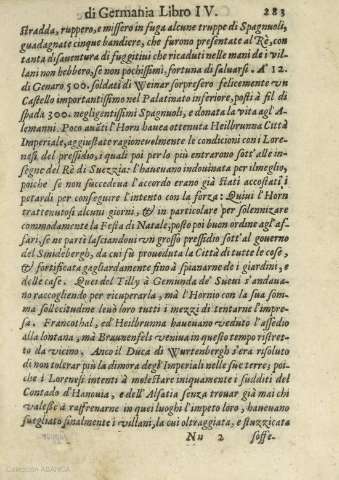 di Germania Libro IV. 283
stradda, ruppero, e missero in fuga alcune truppe di Spagnuoli,
guadagnate cinque bandiere, che furono presentate al Rè, con
tanta disauentura di fuggitiui che ricaduti nelle mani de i vil-
lani non hebbero, se non pochissimi, fortuna di saluarsi. A' 12.
di Genaro 500. soldati di Weinar sorpresero felicemente vn
Castello importantissimo nel Palatinato inferiore, posti à fil di
spada 300. negligentissimi Spagnuoli, e donata la vita agl'A-
lemanni. Poco auāti l'Horn hauea ottenuta Heilbrunna Città
Imperiale, aggiustate ragioneuolmente le conditioni con i Lore-
nesi del pressidio, i quali poi per lo più entrarono sott'alle in-
segne del Rè di Suezzia: l'haueano indouinata per il meglio,
poiche se non succedeua l'accordo erano già stati accostati i
petardi per conseguire l'intento con la forza: Quiui l'Horn
trattenutosi alcuni giorni, & in particolare per solennizare
commodamente la Festa di Natale, posto poi buon ordine agl'af-
fari, se ne partì lasciandoui vn grosso pressidio sott'al gouerno
del Smidebergh, da cui fù proueduta la Città di tutte le cose,
& fortificata gagliardamente fino à spianarne de i giardini, e
delle case. Quei del Tilly à Gemunda de' Sueui s'andaua-
no raccogliendo per ricuperarla, mà l'Hornio con la sua som-
ma sollecitudine leuò loro tutti i mezzi di tentarne l'impre-
sa. Francothal, ed Heilbrunna haueuano veduto l'assedio
alla lontana, mà Braunenfels veniua in questo tempo ristret-
to da vicino. Anco il Duca di Wurtenbergh s'era risoluto
di non tolerar più la dimora degl'Imperiali nelle sue terre; poi-
che i Lorenesi intenti à molestare iniquamente i sudditi del
Contado d'Hanouia, e dell'Alsatia senza trouar già mai chi
valesse à raffrenarne in quei luoghi l'impeto loro, haueuano
suegliato finalmente i villani, la cui oltraggiata, e stuzzicata
Nn 2 soffe-
Colección ABANCA